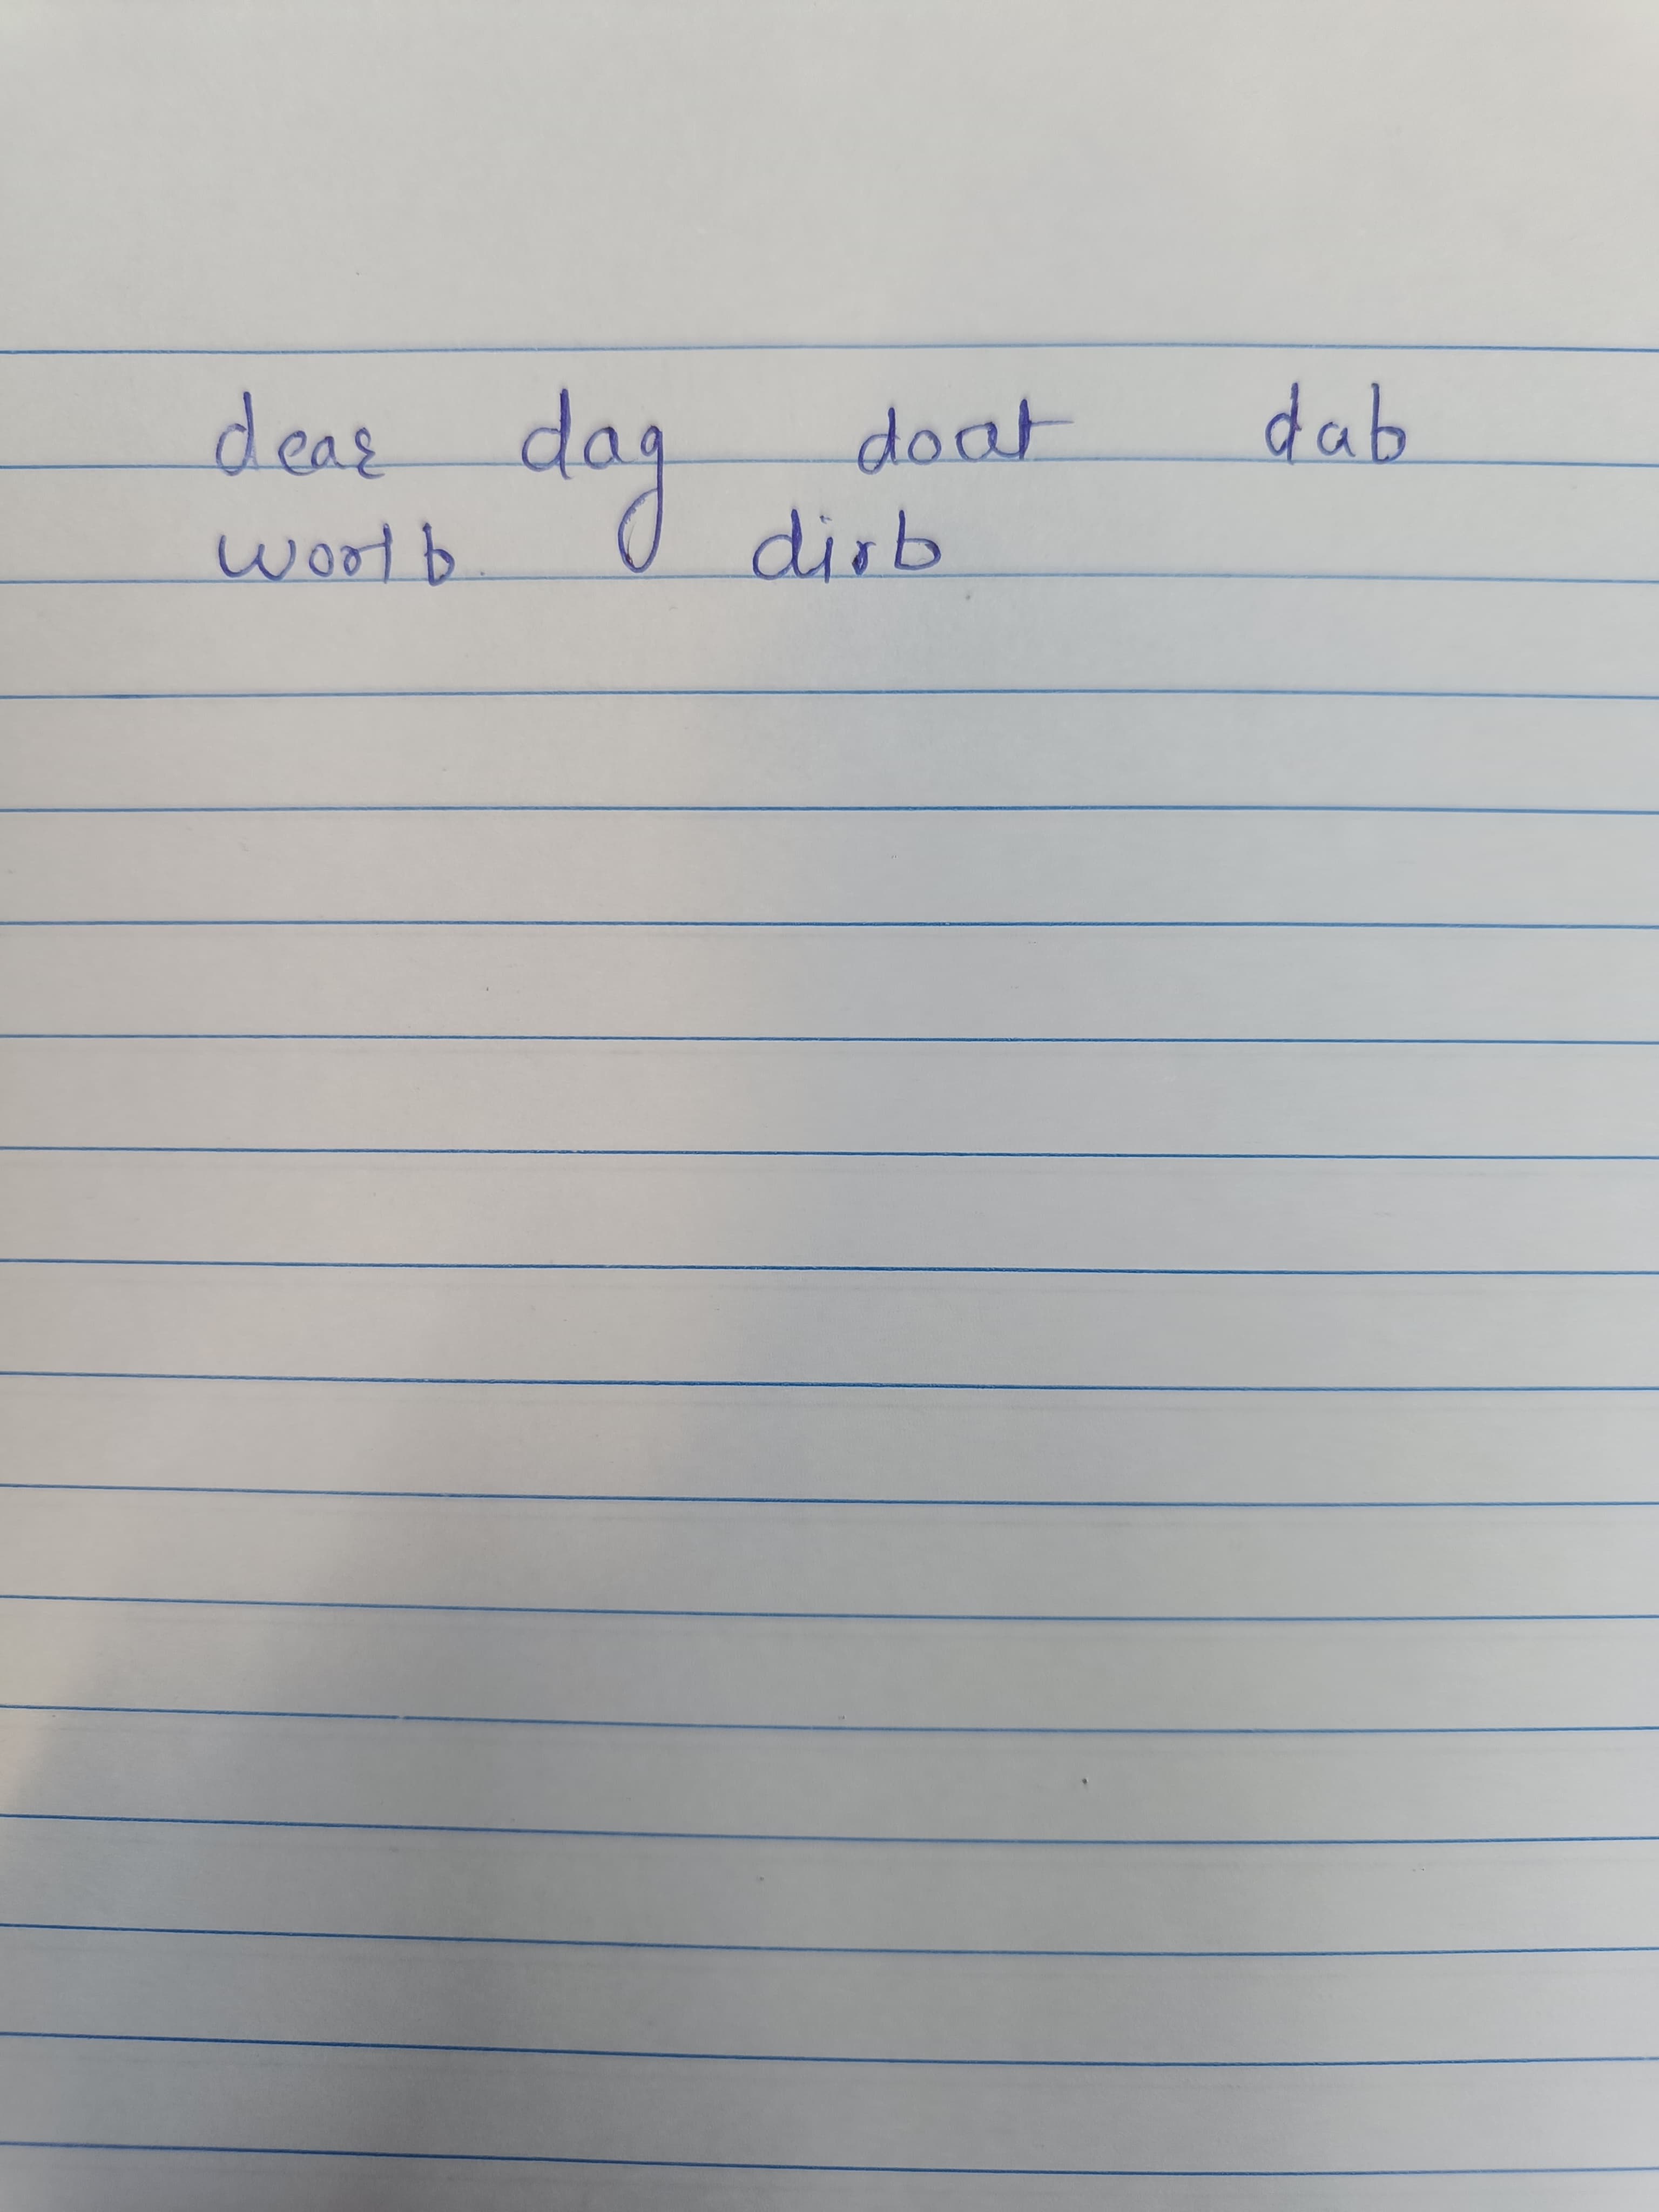 dear dag doat dab
worlb dirb